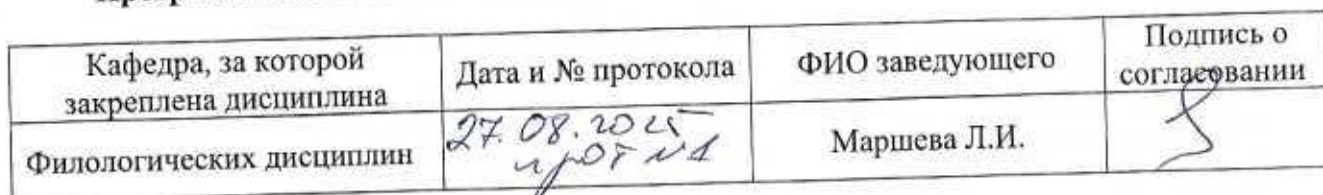 Кафедра, за которой
закреплена дисциплина
Дата и № протокола
ФИО заведующего
Подпись о
согласовании
Филологических дисциплин
27.08.2025
прот №1
Маршева Л.И.